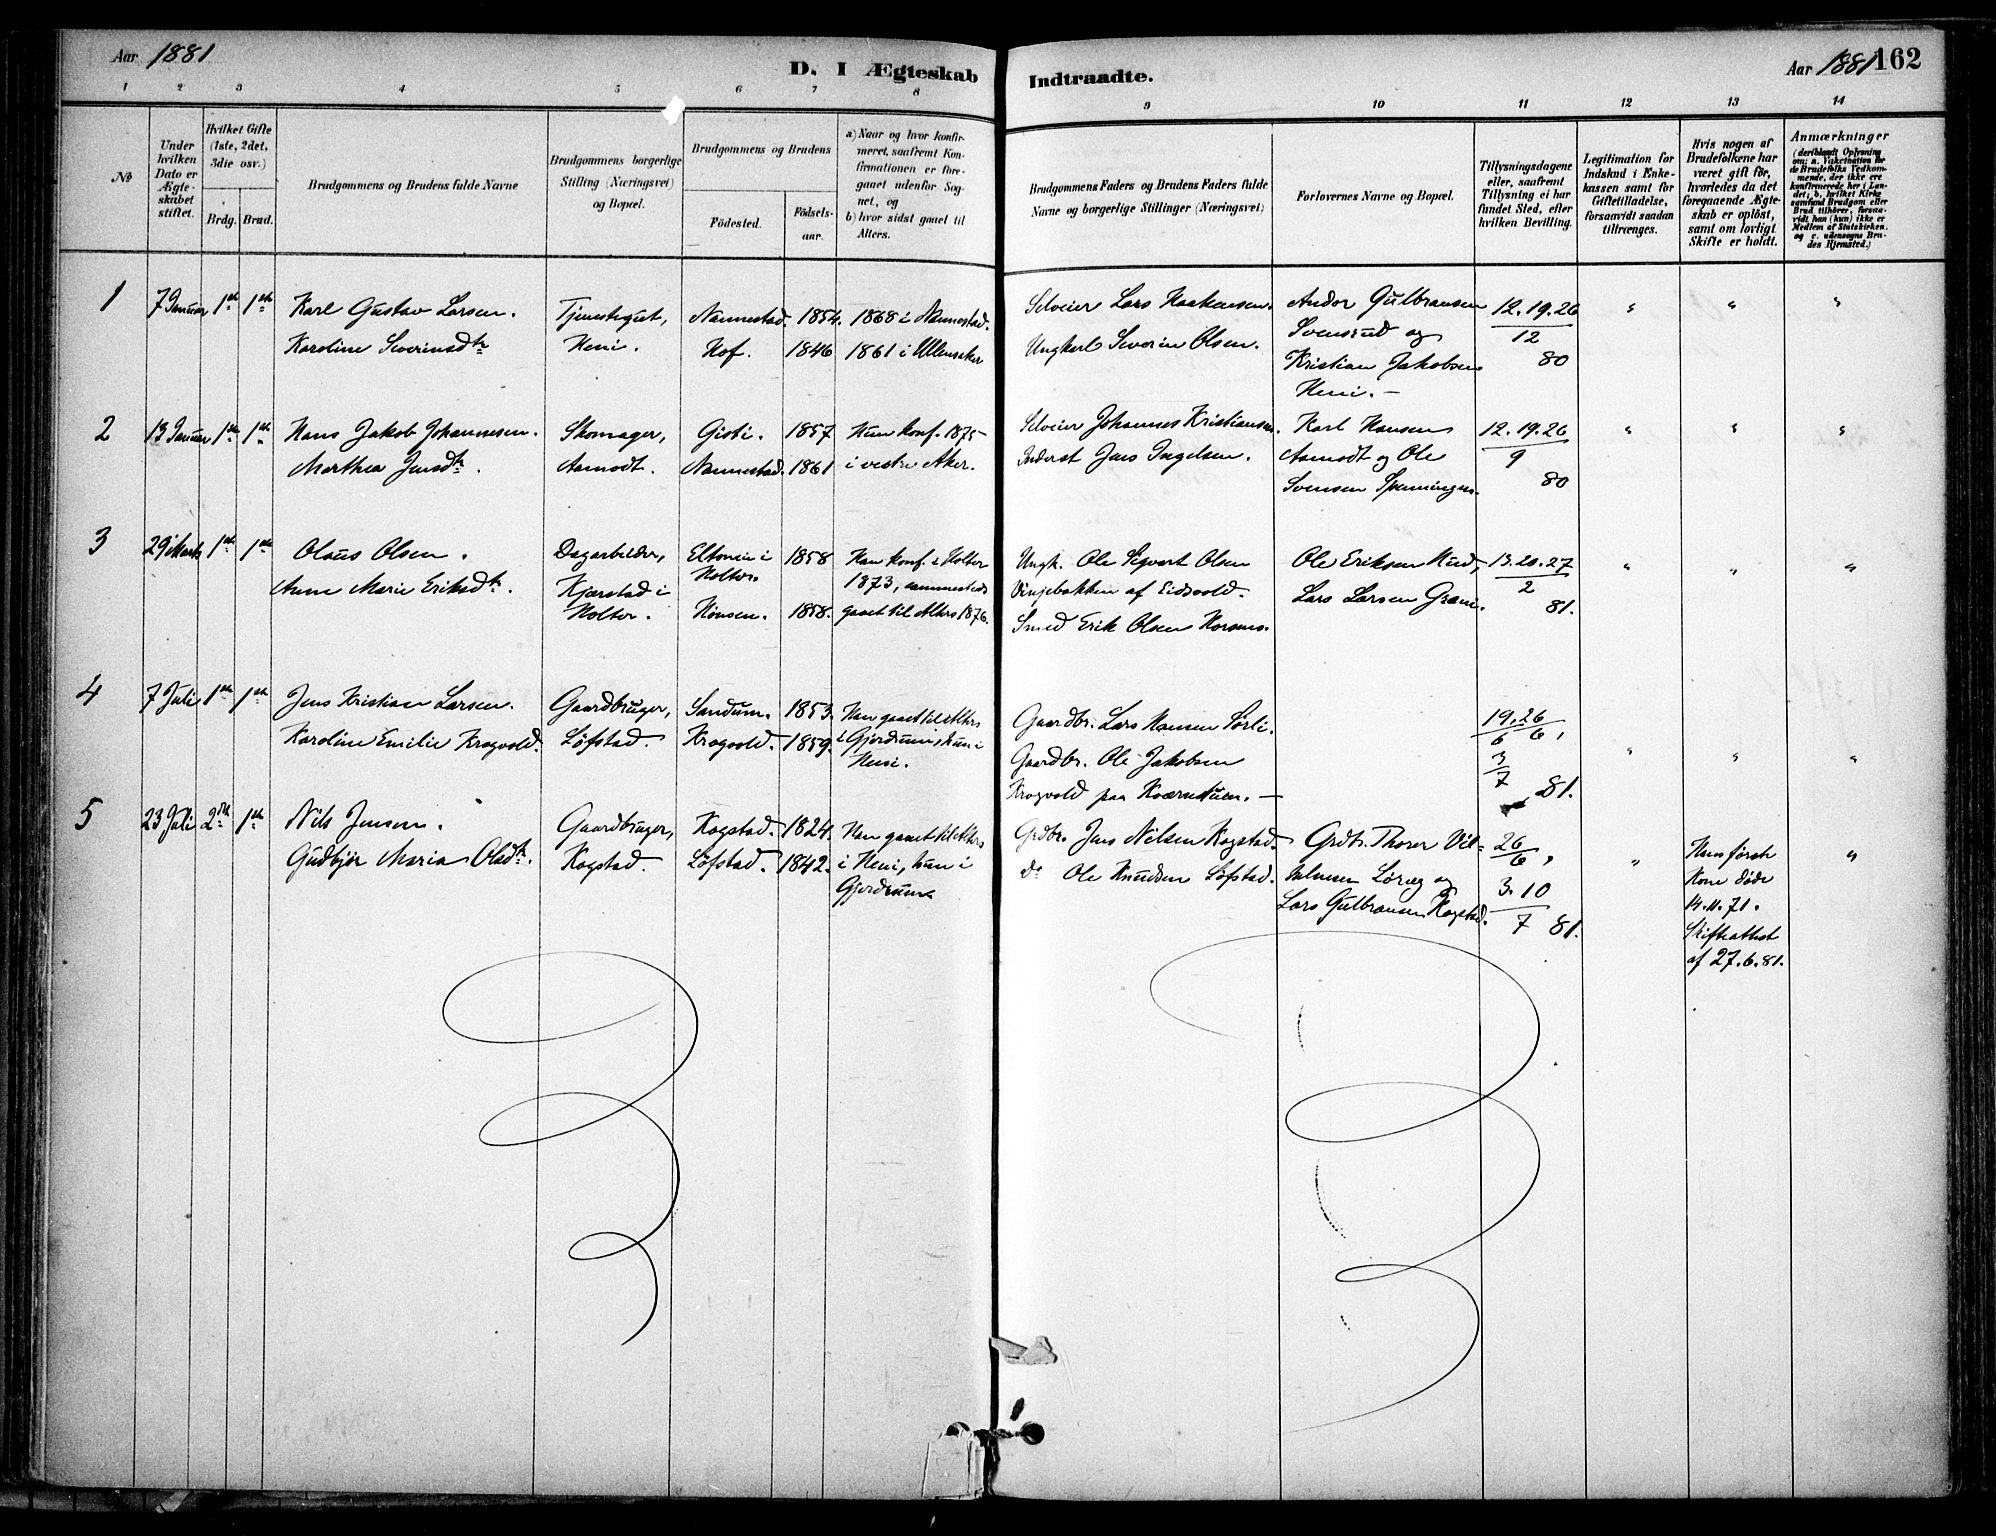 Aar 1881
D. I Ægteskab Indtraadte.
Aar 1881 162
1 2 3 4 5 6 7 8 9 10 11 12 13 14
No
Under hvilken Dato er Ægteskabet stiftet.
Hvilket Gifte (1ste, 2det, 3die osv.)
Brdg. Brud.
Brudgommens og Brudens fulde Navne
Brudgommens borgerlige Stilling (Næringsvei) og Bopæl.
Brudgommens og Brudens
Födested. Födselsaar.
a) Naar og hvor konfirmeret, saafremt Konfirmationen er foregaaet udenfor Sognet, og
b) hvor sidst gaaet til Alters.
Brudgommens Faders og Brudens Faders fulde Navne og borgerlige Stillinger (Næringsvei)
Forlovernes Navne og Bopæl.
Tillysningsdagene eller, saafremt Tillysning ei har fundet Sted, efter hvilken Bevilling.
Legitimation for Indskud i Enkekassen samt for Giftetilladelse, forsaavidt saadan tiltrænges.
Hvis nogen af Brudefolkene har været gift för, hvorledes da det foregaaende Ægteskab er oplöst, samt om lovligt Skifte er holdt.
Anmærkninger
(deriblandt Oplysning om: a. Vakcination for de Brudefolks Vedkommende, der ikke ere konfirmerede her i Landet; b. hvilket Kirkesamfund Brudgom eller Brud tilhörer, forsaavidt han (hun) ikke er Medlem af Statskirken. og c. udensogns Brudes Hjemsted.)
1 7 Januar 1ste 1ste Karl Gustav Larsen. Tjenestegut, Nannestad. 1854. 1868 i Nannestad. Selveier Lars Haakensen. Andor Gulbransen 12.19.26 " " "
Karoline Severinsdtr Heni. Hof. 1846 1861 i Ullensaker Ungkarl Severin Olsen. Svensrud og 12
Kristian Jakobsen 80
Heni. —
2 13 Januar 1ste 1ste Hans Jakob Johannesen. Skomager, Gisti. 1857 Hun konf. 1875 Selveier Johannes Kristiansen. Karl Hansen 12.19.26 " " "
Marthea Jensdtr. Aamodt. Nannestad. 1861 i vestre Aker. Inderst Jens Ingelsen. Aamodt og Ole 9
Svensen Spenningen. 80
3 29 Marts 1ste 1ste Olaus Olsen. Dagarbeider, Eltonin i 1858 Han konf. i Holter Ungk. Ole Sigvart Olsen Ole Eriksen Rud, 13.20.27 " " "
Anne Marie Eriksdtr. Kjærstad i Holter. 1873, sammesteds Vinjebakken af Eidsvold. Lars Larsen 2
Holter. 1858. gaaet til Alters 1876. Smed Erik Olsen 81.
4 7 Juli 1ste 1ste Jens Kristian Larsen. Gaardbruger, Sandum. 1853. Han gaaet til Alters Gaardbr. Lars Hansen Sørli. 19.26
Karoline Emilie Krogvold. Løfstad. Krogvold. 1859. i Gjerdrum, hun i Gaardbr. Ole Jakobsen 6 6, " " "
Heni. Krogvold paa Kværnetuen. — 3
7 81.
5 23 Juli 2det 1ste Nils Jensen. Gaardbruger, Kogstad. 1824. Han gaaet til Alters Grdbr. Jens Nilsen Kogstad. Grdbr. Thorer Vil= 26 " Hans første "
Gudbjør Maria Olsdtr. Kogstad. Løfstad. 1842. i Heni, hun i do Ole Knudsen Løfstad. 6, Kone døde
Gjerdrum. Lars Gulbransen Kogstad. 3.10 14.11.71.
7 81. Skifteattest
af 27.6.81.